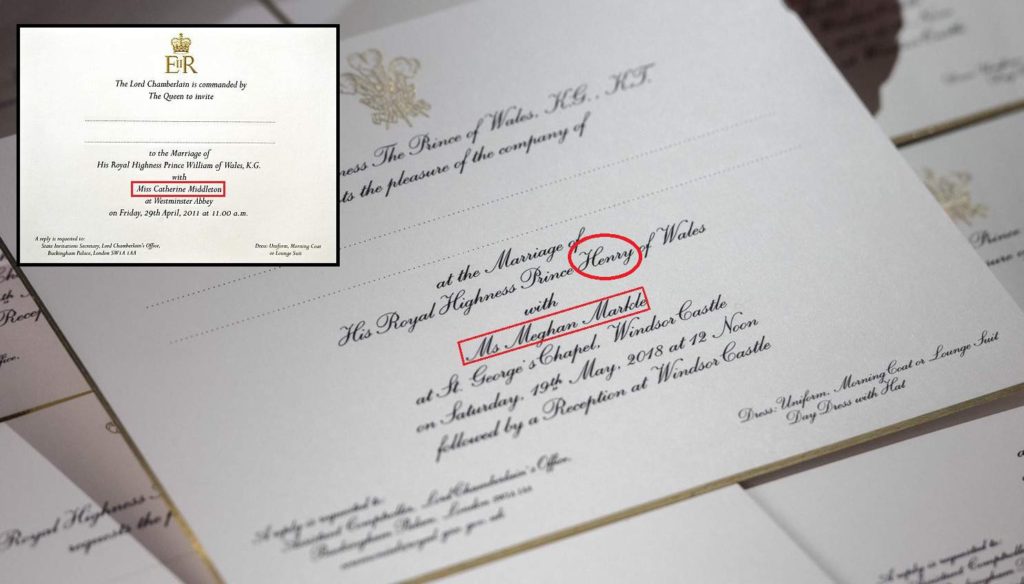 EIIR
The Lord Chamberlain is commanded by
The Queen to invite
to the Marriage of
His Royal Highness Prince William of Wales, K.G.
with
Miss Catherine Middleton
at Westminster Abbey
on Friday, 29th April, 2011 at 11.00 a.m.
A reply is requested to:
State Invitations Secretary, Lord Chamberlain's Office,
Buckingham Palace, London SW1A 1AA
Dress: Uniform, Morning Coat
or Lounge Suit
The Prince of Wales, K.G., K.T.
the pleasure of the company of
at the Marriage of
His Royal Highness Prince Henry of Wales
with
Ms Meghan Markle
at St. George's Chapel, Windsor Castle
on Saturday, 19th May, 2018 at 12 Noon
followed by a Reception at Windsor Castle
Dress: Uniform, Morning Coat or Lounge Suit
Day Dress with Hat
A reply is requested to:
Lord Chamberlain's Office,
Palace, London
Royal Highness
requests the